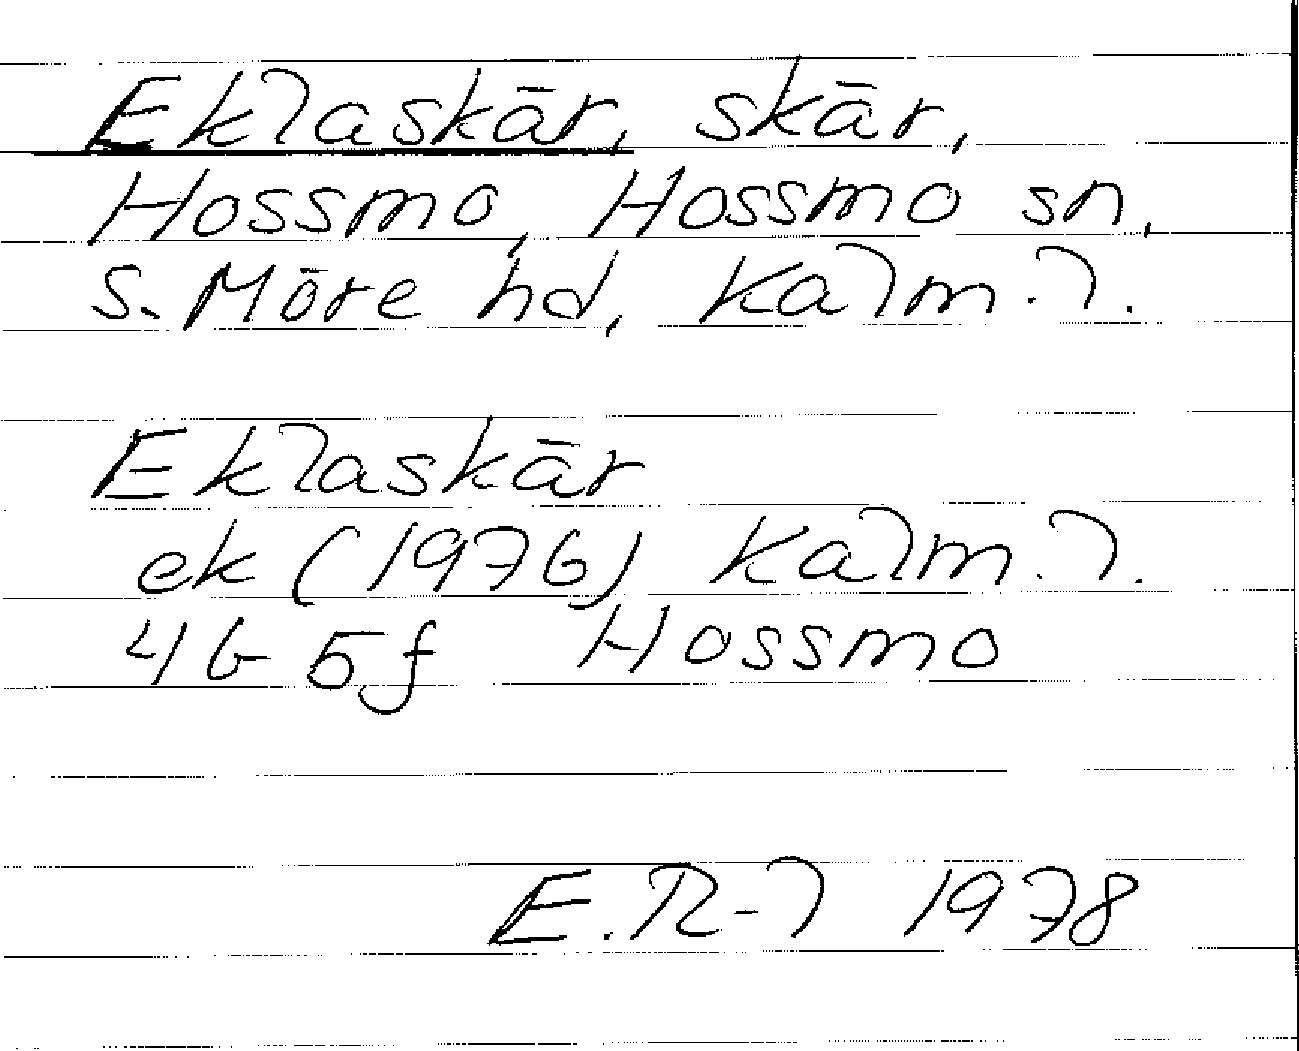 Eklaskär, skär,
Hossmo, Hossmo sn,
S. Möre hd, Kalm. l.
Eklaskär
ek (1976) Kalm. l.
4G 5f Hossmo
E. R-l 1978